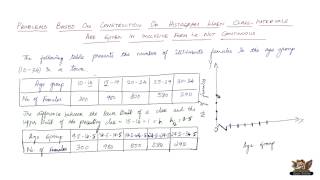 PROBLEMS BASED ON CONSTRUCTION OF HISTOGRAM WHEN CLASS-INTERVALS
ARE GIVEN IN INCLUSIVE FORM i.e NOT CONTINUOUS
The following table presents the number of illiterate females in the age group
(10-34) in a town
Age group 10-14 15-19 20-24 25-29 30-34
No of Females 300 980 800 580 290
The difference between the lower limit of a class and the
upper limit of the preceding class = 15-14 = 1 = h
Age Group 9.5-14.5 14.5-19.5 19.5-24.5 24.5-29.5 29.5-34.5
No of Females 300 980 800 580 290
Age Group